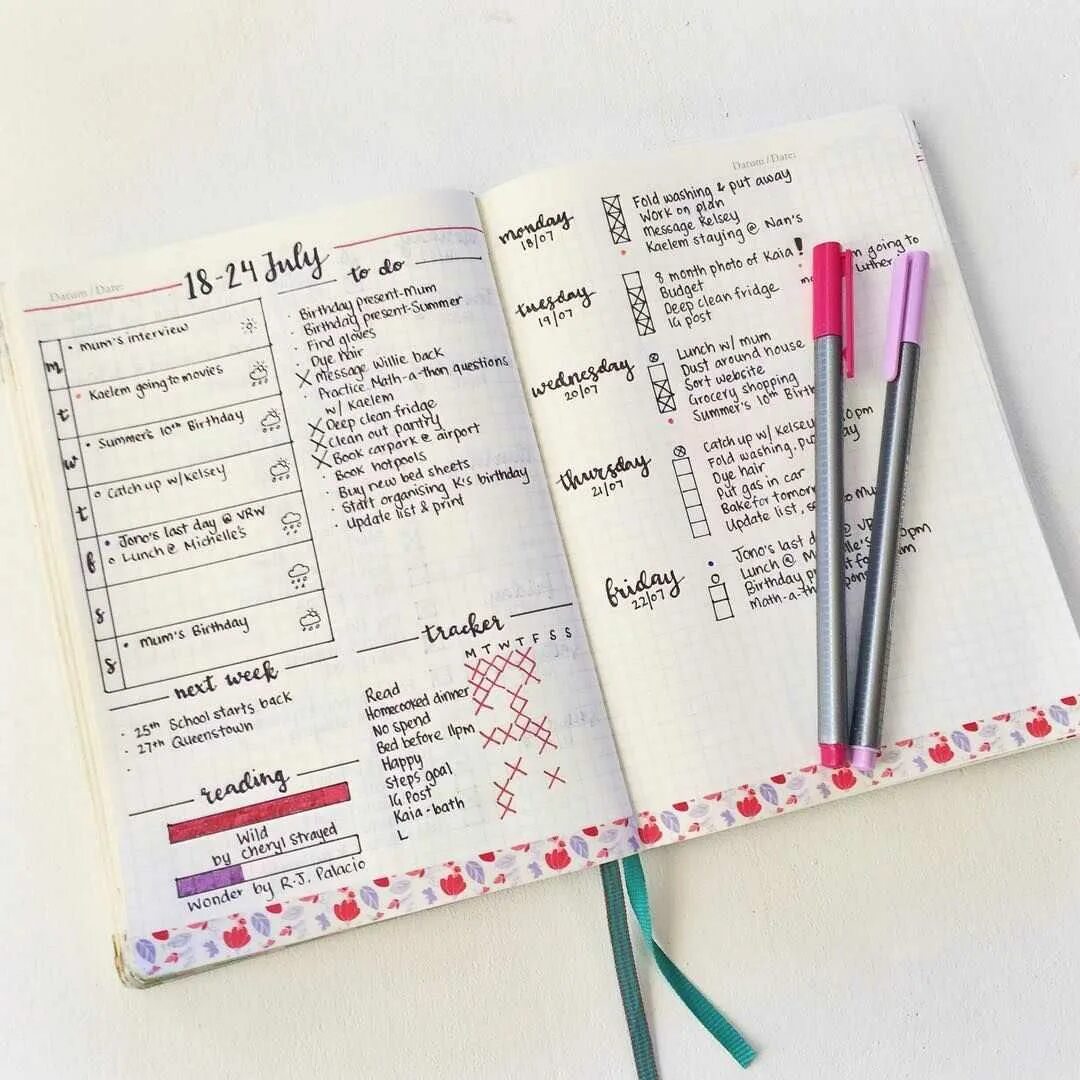 Datum / Date:
18-24 July
m
• mum's interview
t
• Kaelem going to movies
w
• Summer's 10th Birthday
t
o Catch up w/ Kelsey
f
• Jono's last day @ VRW
o Lunch @ Michelle's
s
s
• mum's Birthday
next week
• 25th School starts back
• 27th Queenstown
•
reading
Wild
by Cheryl Strayed
Wonder by R.J. Palacio
to do
• Birthday present-Mum
• Birthday present-Summer
• Find gloves
• Dye hair
X message Willie back
• Practice Math-a-thon questions
w/ Kaelem
X Deep clean fridge
X Clean out pantry
X Book carpark @ airport
• Book hotpools
• Buy new bed sheets
• Start organising K's birthday
• Update list & print
tracker
M T W T F S S
Read
Homecooked dinner
No spend
Bed before 11pm
Happy
Steps goal
IG Post
Kaia - bath
L
Datum / Date:
monday
18/07
Fold washing & put away
Work on plan
Message Kelsey
Kaelem staying @ Nan's
tuesday
19/07
8 month photo of Kaia!
going to
Budget
Luther
Deep clean fridge
IG post
wednesday
20/07
Lunch w/ mum
Dust around house
Sort website
Grocery shopping
Summer's 10th
thursday
21/07
Catch up w/ Kelsey
pm
Fold washing, put
Dye hair
Put gas in car
Bake for
Update list,
friday
22/07
Jono's last
Lunch @
pm
Birthday
Math-a-